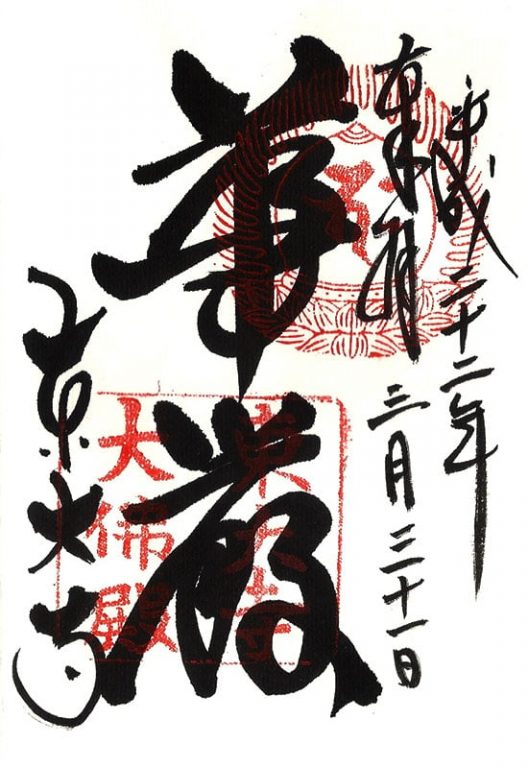 平成二十二年
奉拝
三月三十一日
華厳
東大寺
東大寺
大佛殿